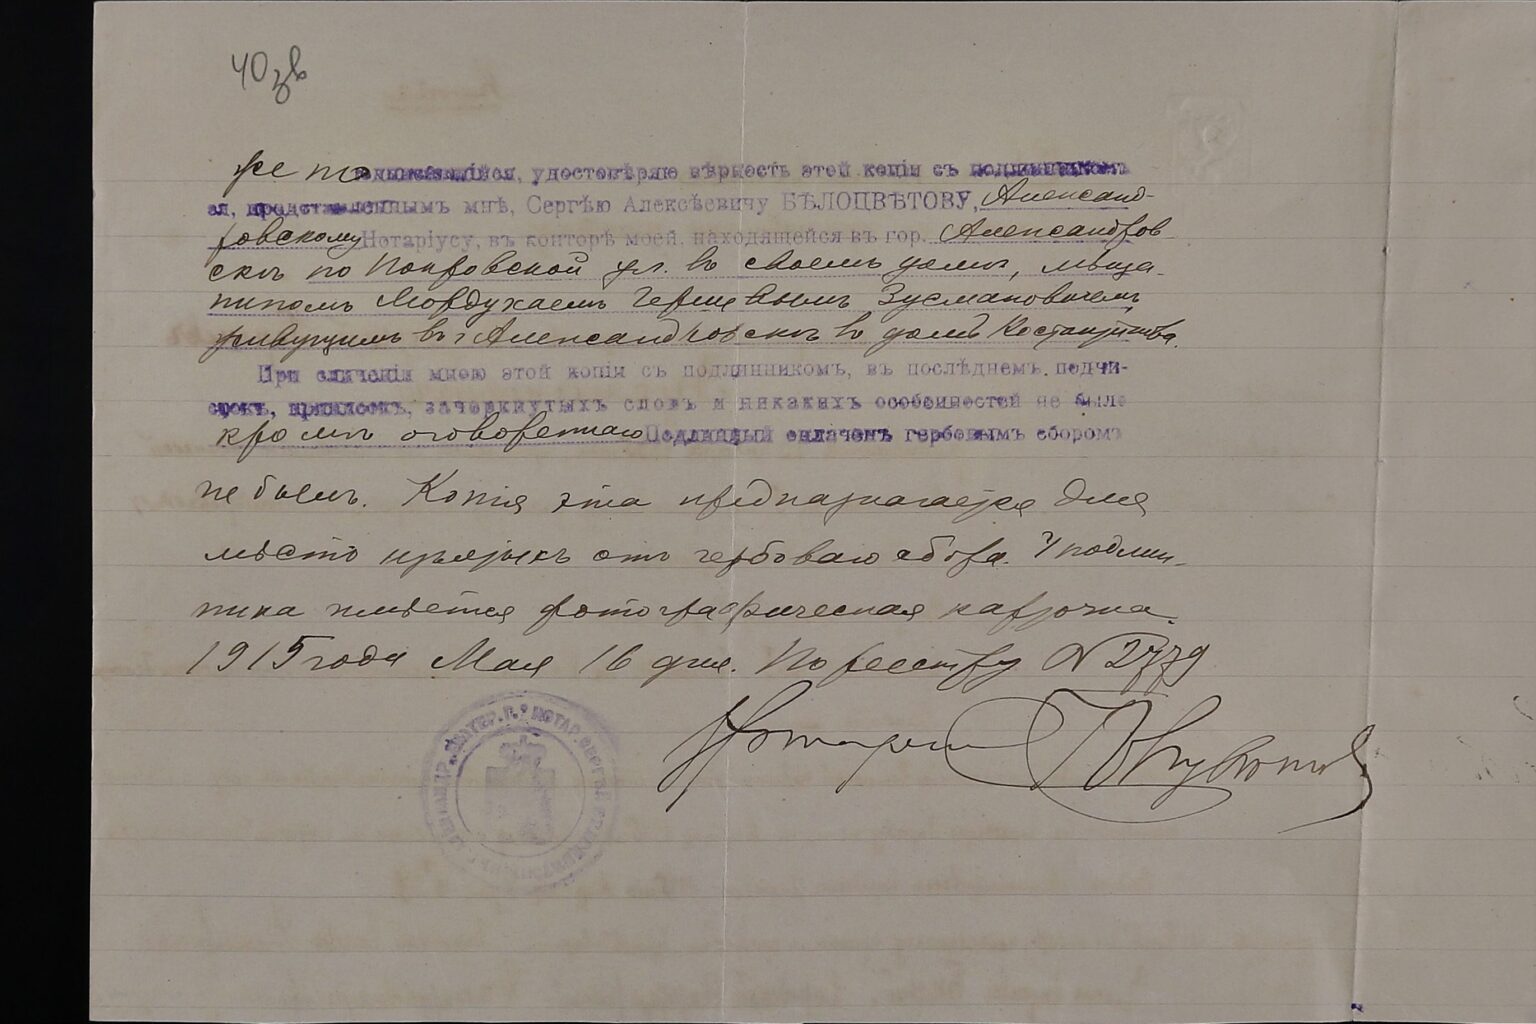 40 зв
же по удостовѣряю вѣрность этой копіи съ подлинникомъ
ея, представленнымъ мнѣ, Сергѣю Алексѣевичу БѢЛОЦВѢТОВУ, Александ-
ровскому Нотаріусу, въ конторѣ моей, находящейся въ гор. Александров
скѣ по Покровской ул. въ своемъ домѣ, мѣща-
ниномъ Мордухаемъ Гершевымъ Зусмановичемъ,
живущимъ въ г Александровскѣ въ домѣ
При сличеніи мною этой копіи съ подлинникомъ, въ послѣднемъ подчи-
стокъ, приписокъ, зачеркнутыхъ словъ и никакихъ особенностей не было
кромѣ оговореннаго Подлинный оплаченъ гербовымъ сборомъ
не былъ. Копія эта предназначается для
мѣстъ изъятыхъ отъ гербоваго сбора. У подлин-
ника имѣется фотографическая карточка.
1915 года Мая 16 дня. По реестру № 2779
Нотаріусъ